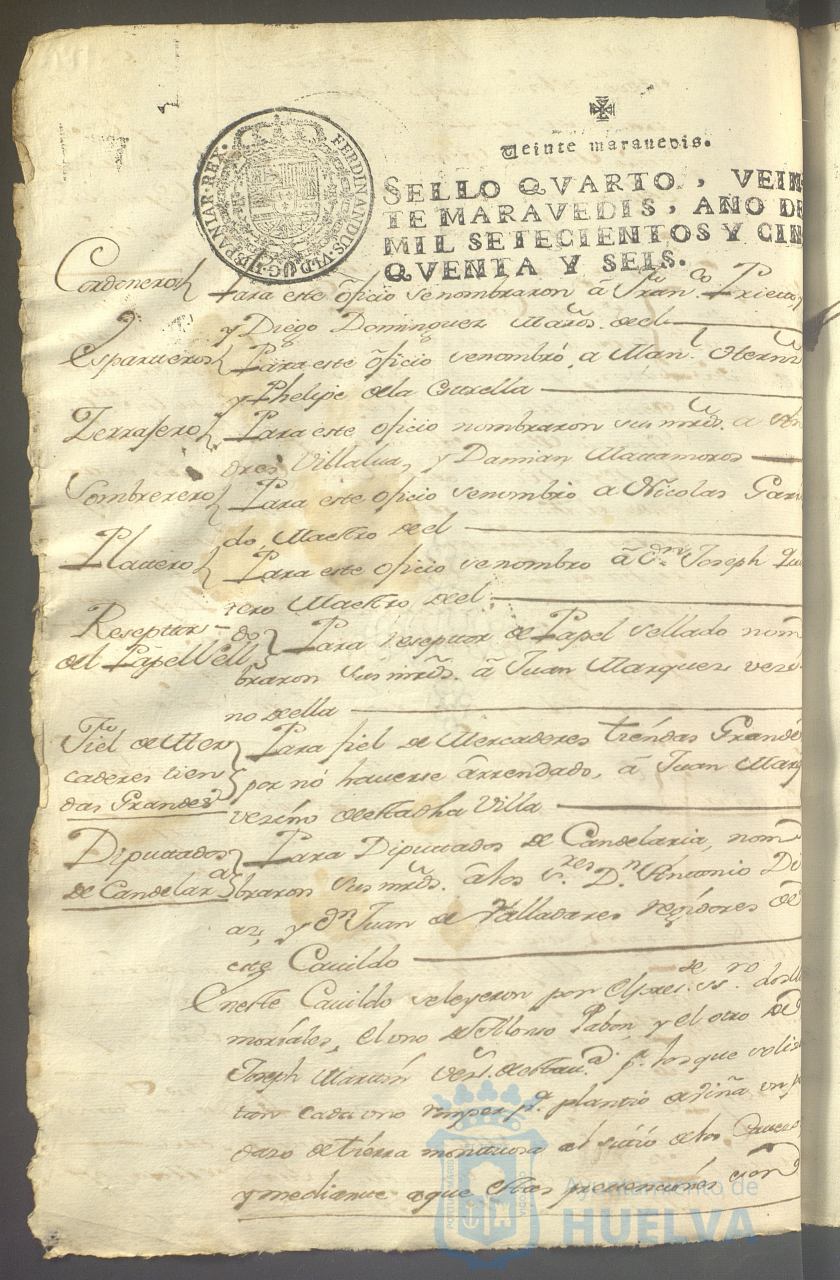 Veinte maravedis.
FERDINANDUS·VI·D·G·HISPANIAR·REX·
SELLO QVARTO, VEIN
TE MARAVEDIS, AÑO DE
MIL SETECIENTOS Y CIN
QVENTA Y SEIS.
Cordonero} Para este ofiçio senombraron â Fran.co Prieto, y
y Diego Dominguez Maros. de el
Esparteros} Para este ofiçio senombró, a Man.l
y Phelipe de la
Zerrajero} Para este ofiçio nombraron sus mrds. a An
dres Villalva, y Damian Matamoros
Sombrerero} Para este ofiçio senombro a Nicolas Garri
do Maestro de el
Platero} Para este ofiçio senombro â Dn. Joseph Qui
rero Maestro de el
Reseptor
del Papel Sell
do} Para reseptor de Papel sellado nom
braron sus mrds. â Juan Marquez vezi
no de ella
Fiel de Mer
caderes tien
das Grandes} Para fiel de Mercaderes tiendas Grande
por nó haverse ârrendado, â Juan Marq
vezino de esta dha Villa
Diputados
de Candelar.a} Para Diputados de Candelaria, nom
braron sus mrds. âlos S.res D.n Antonio Di
az, y Dn Juan de Valladares regidores de
este Cavildo
En este Cavildo seleyeron por el pres.te ss.no dos Me
moriales, el uno de Alonso Pabon, y el otro de
Joseph Martin vez.s de esta v.a p.r los que solisi
tan cada uno romper p.a plantio de viña un pe
dazo de tierra montuosa al sitio de los
y mediante aque estas pretenciones
Ayuntamiento de
HUELVA